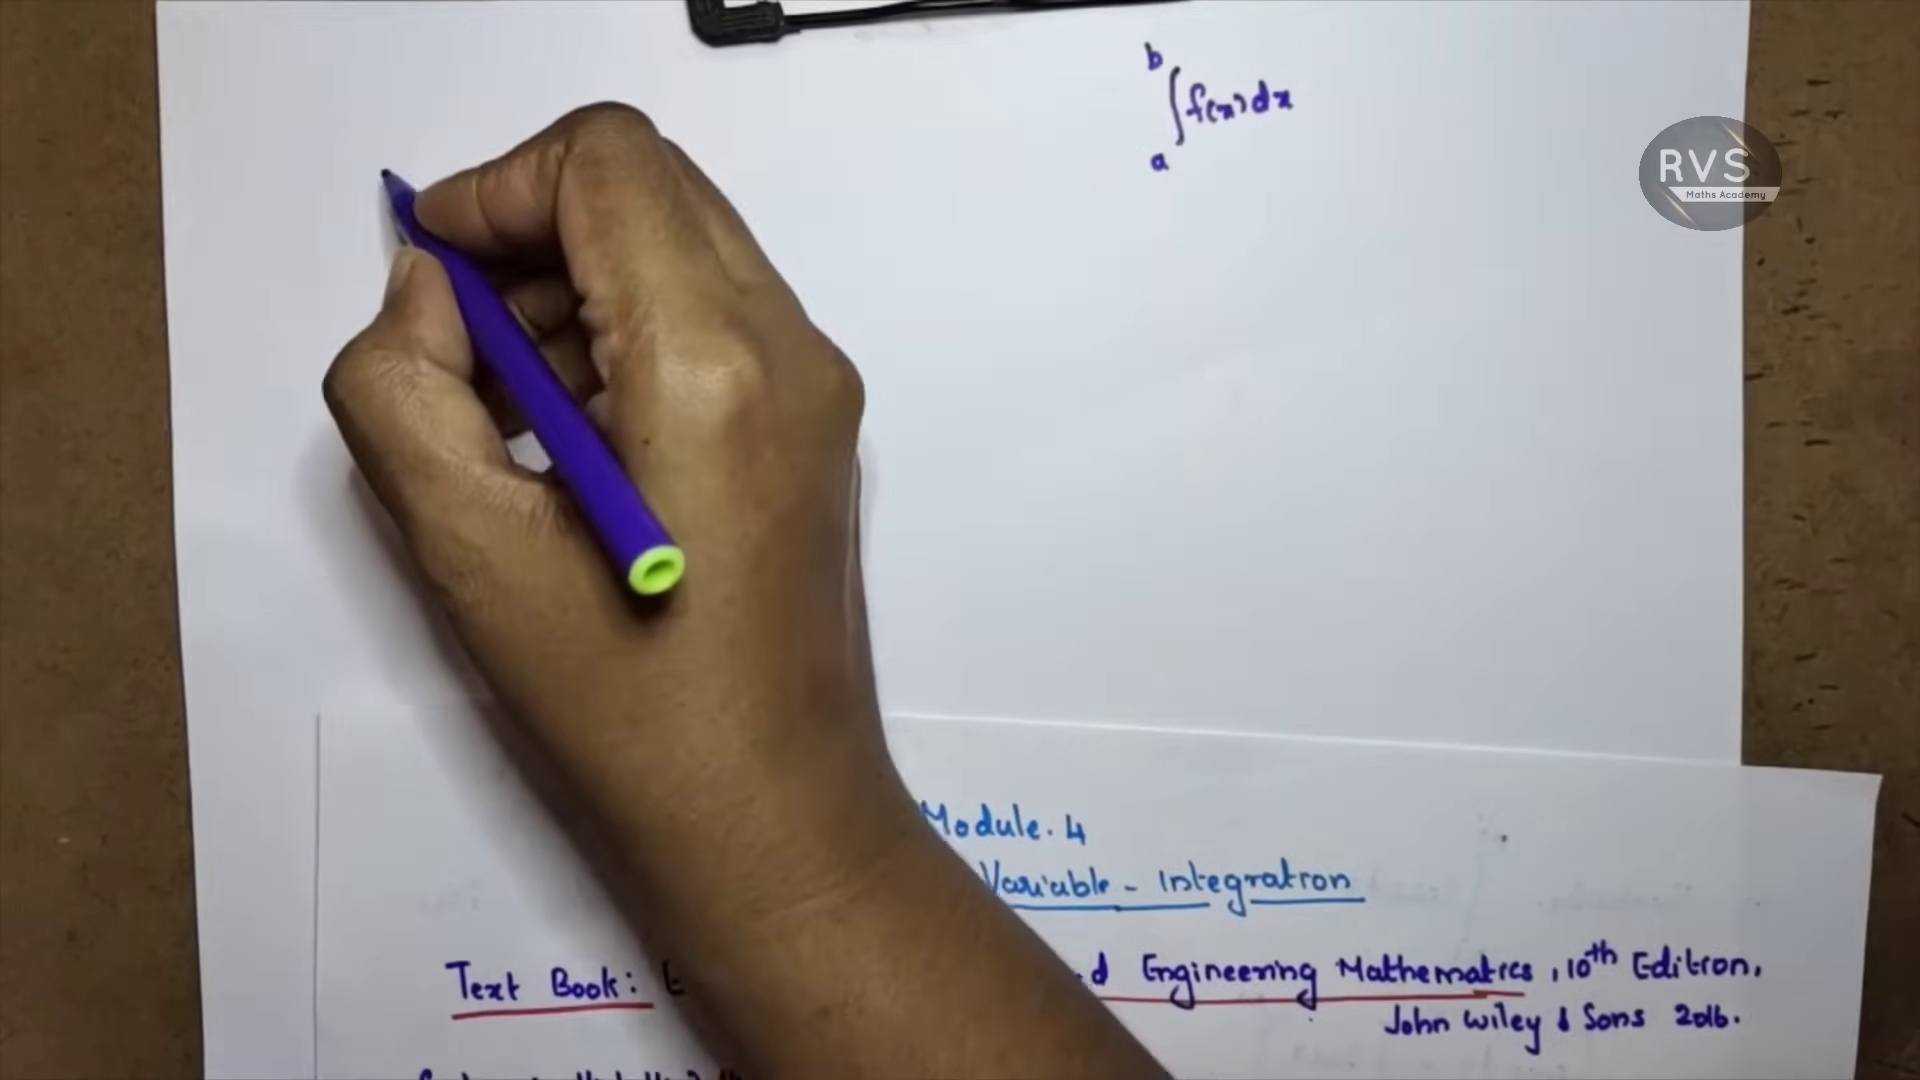 b
∫f(x)dx
a
RVS
Maths Academy
Module. 4
Variable - Integration
Text Book: Engineering Mathematics, 10th Edition,
John Wiley & Sons 2016.